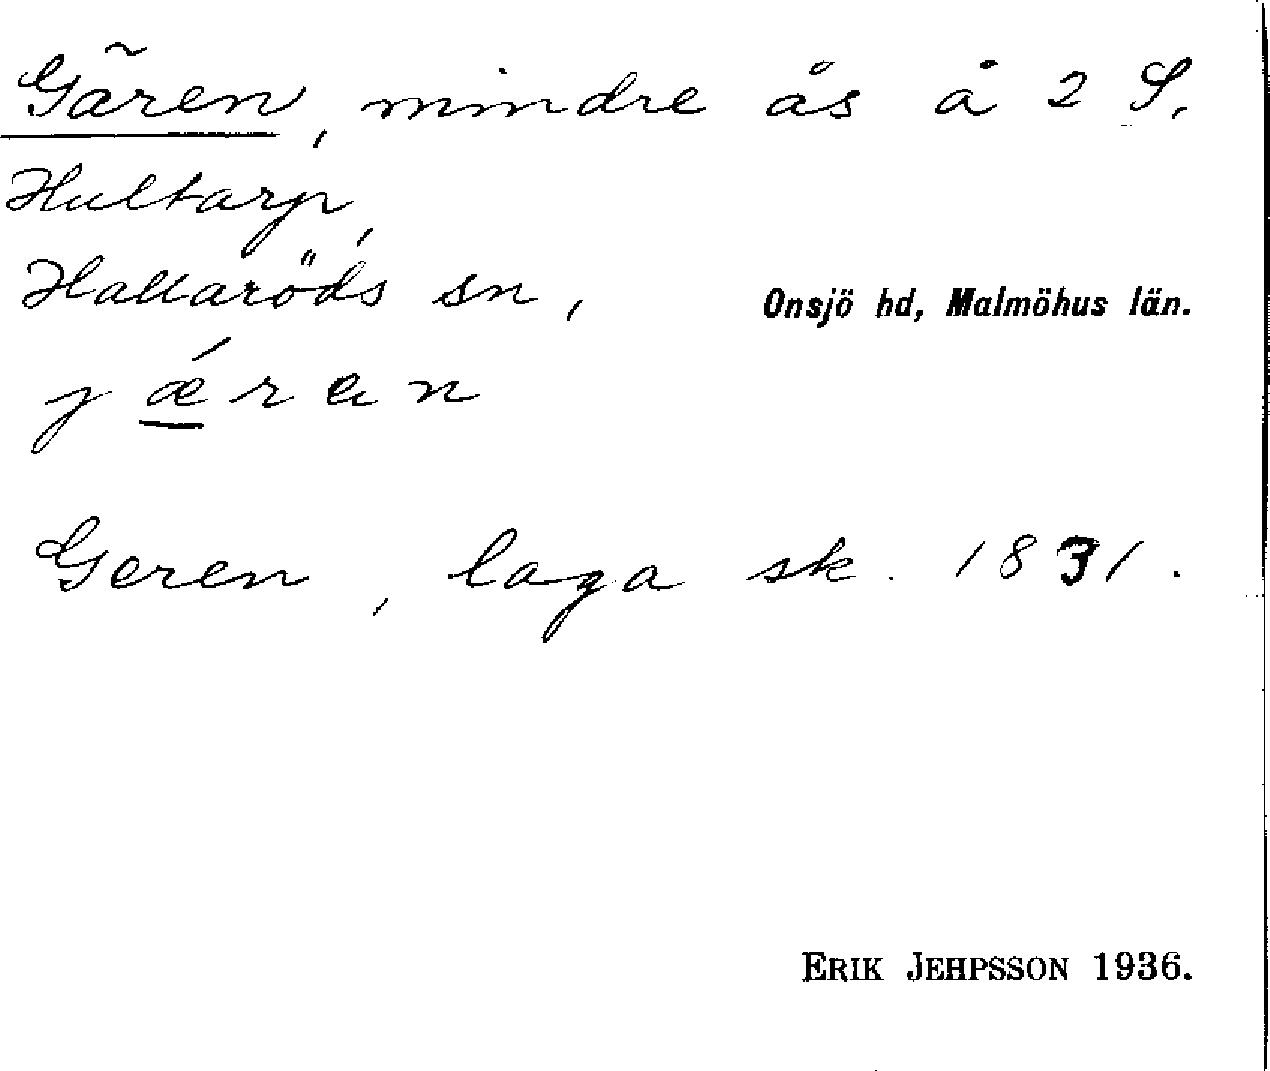 Gären, mindre ås å 2 S.
Hultarp,
Hallaröds sn, Onsjö hd, Malmöhus län.
jǽrɐn
Geren, laga sk. 1831.
ERIK JEHPSSON 1936.